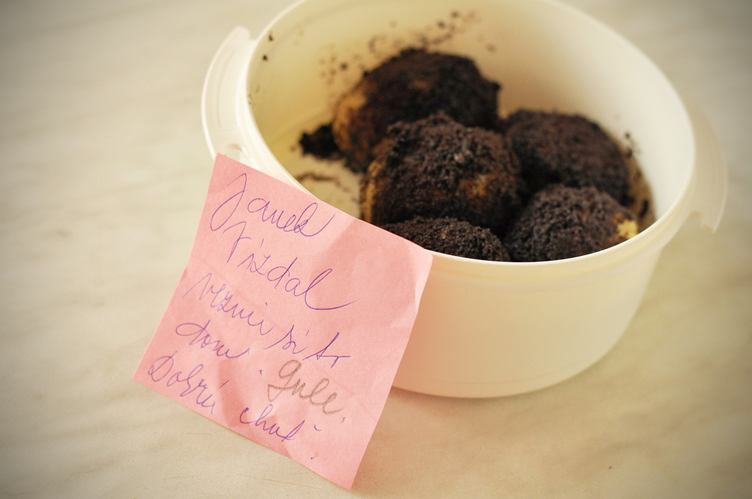 Janek
Vizdal
vezmi si to
domi. Gule.
Dobrú chuť.